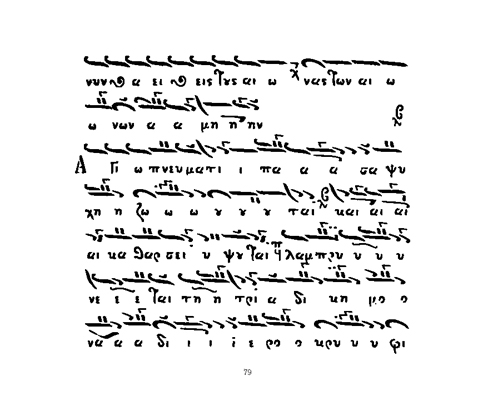 νυν ȣ α ει ȣ εις Τȣς αι ω νας Των αι ω
ω νων α α μη η ην
Α Γι ω πνευματι ι πα α α σα ψυ
χη η ζω ω ω υ υ υ ται και αι αι
αι κα θαρ σει υ ψȣ Ται λαμπρυ υ υ υ
νε ε ε Ται τη η τρι α δι κη μο ο
να α α δι ι ι ι ε ρο ο κρυ υ υ φι
79